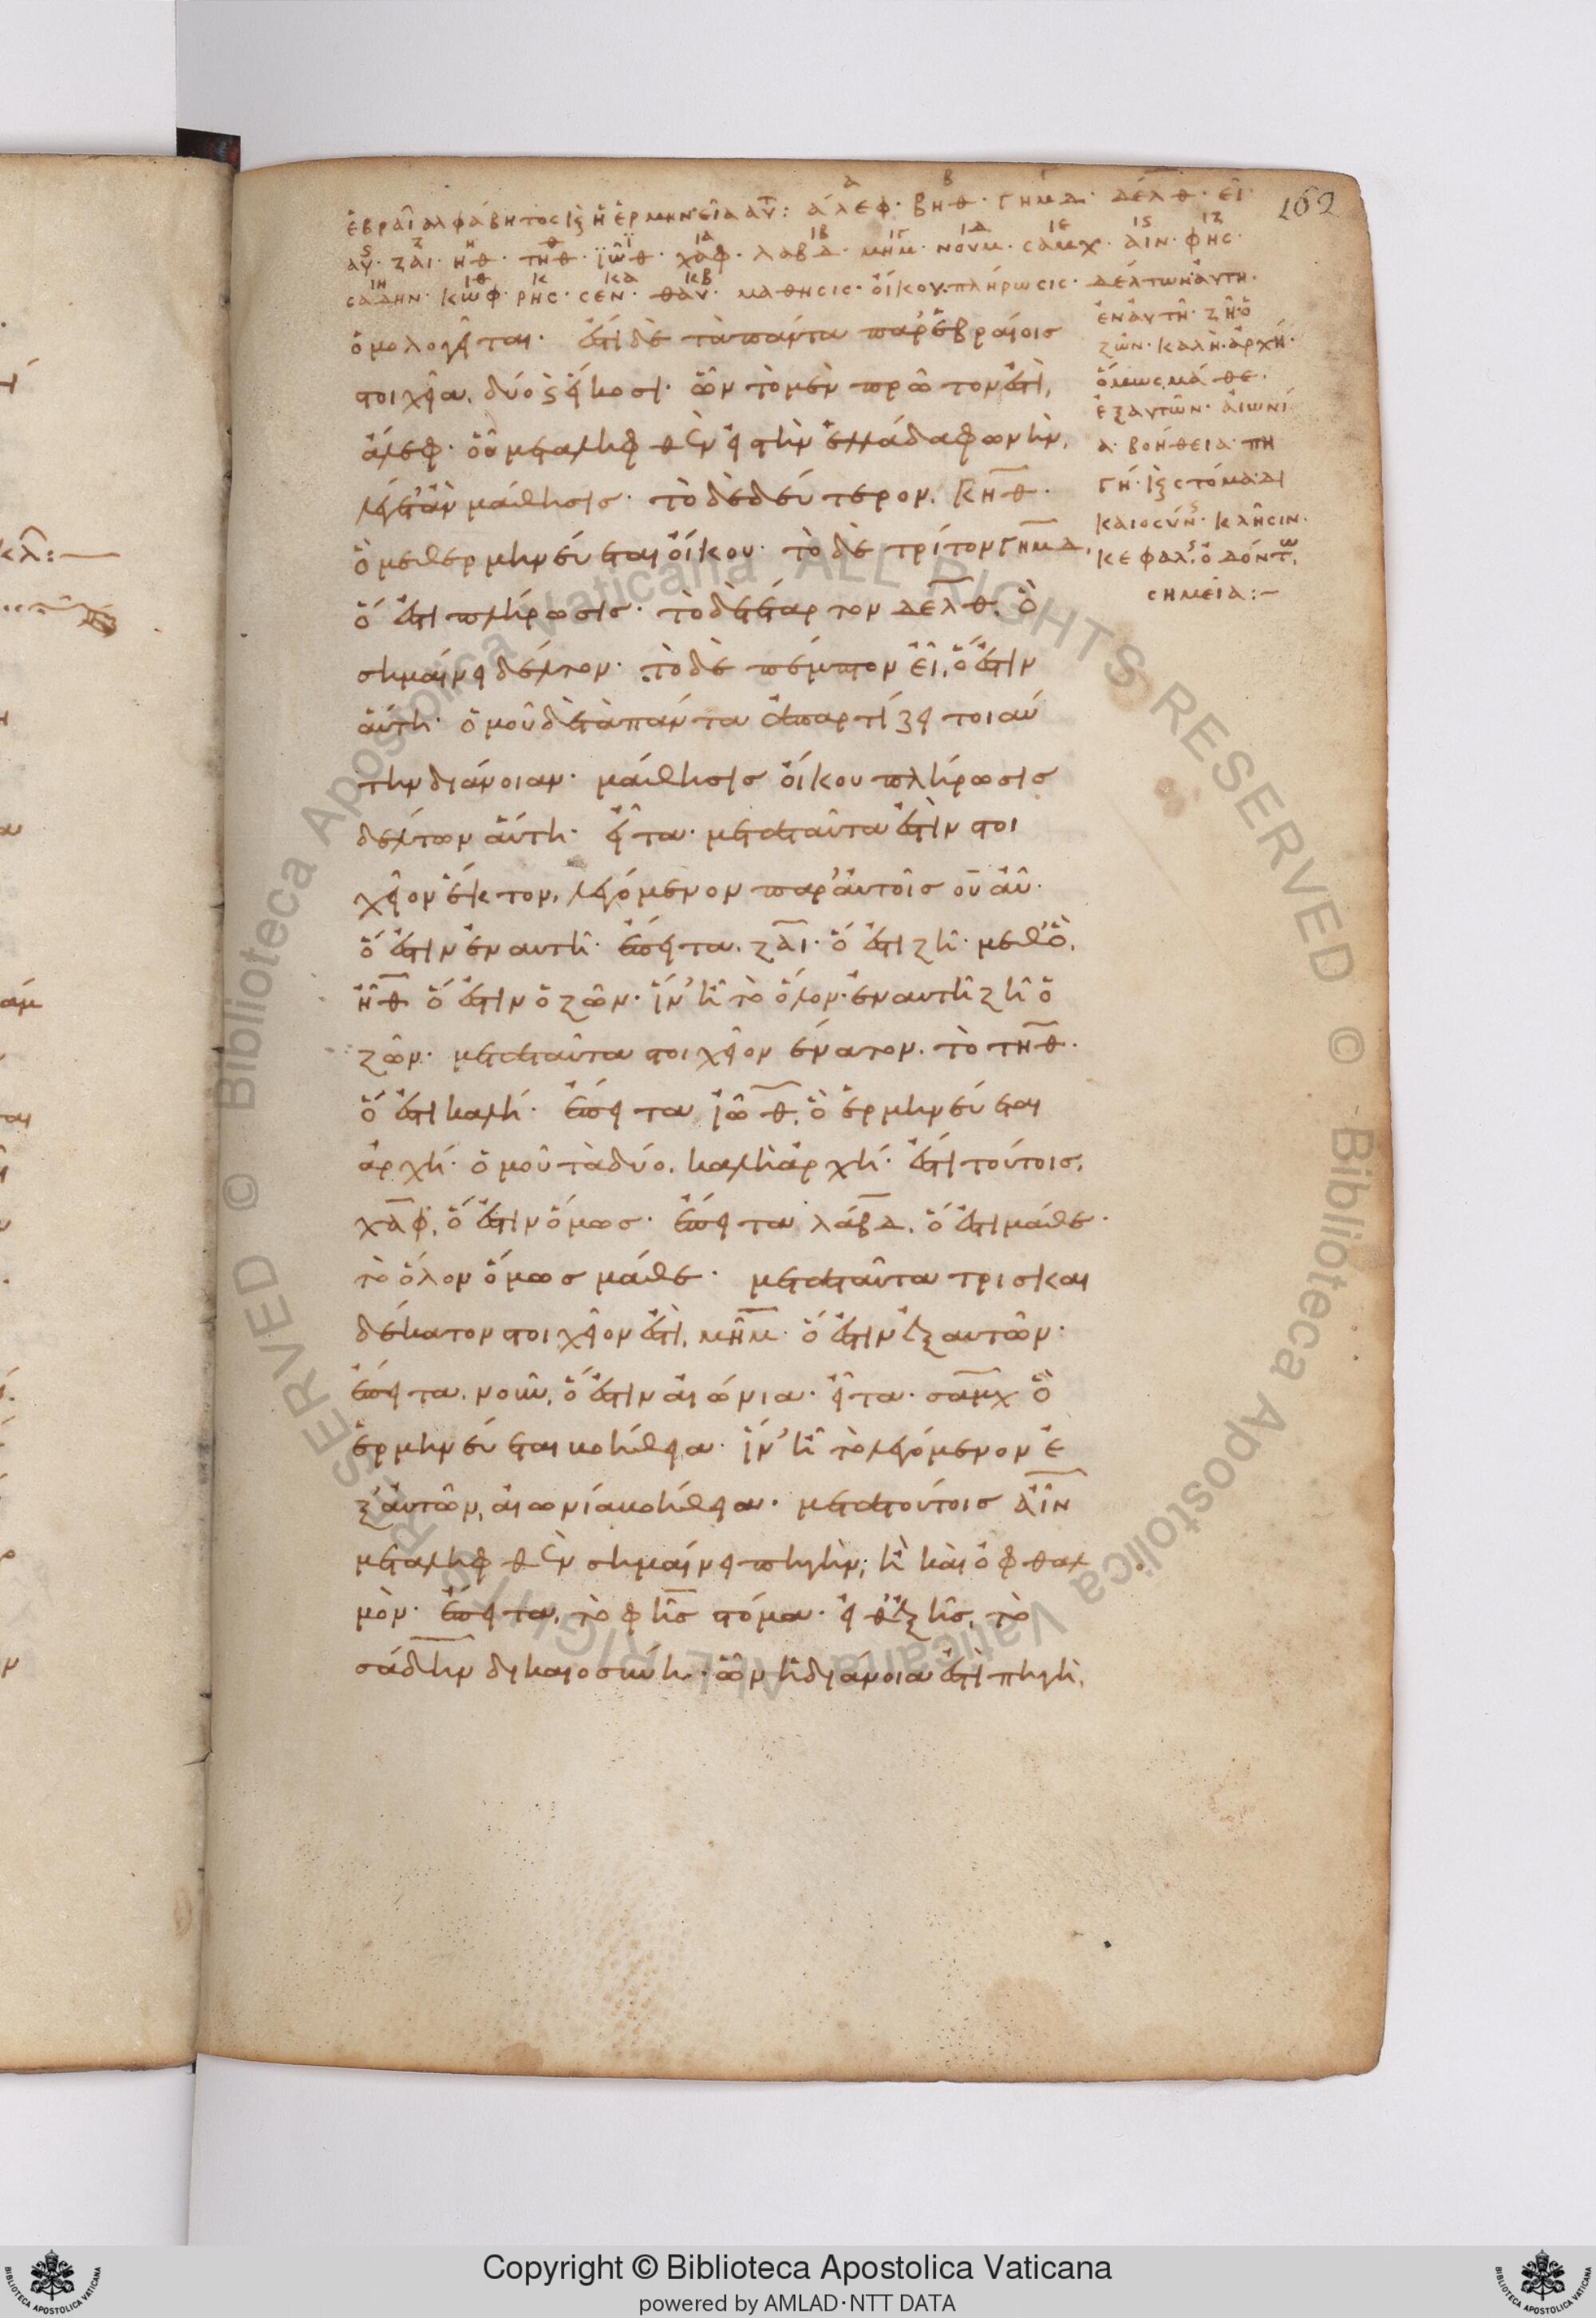 ἑβραϊ ἀλφάβητος κ ἡ ἑρμηνεία αυτ: ἄλεφ· βηθ· γημδ· δέλθ· εῖ·
αυ· ζαι· ηθ· τηθ· ϊωθ· χαφ· λαβδ· μημ· νουμ· σαμχ· αιν· φης·
σαδην· κωφ· ρης· σεν· θαυ· μαθησις· οἴκου· πλήρωσις· δέλτων αὕτη·
ἐν αὐτῆ· ζῆ· ὁ
ζῶν· καλὴ· ἀρχή·
ὅμως μάθε·
ἐξ αυτῶν· αἰωνί
α· βοήθεια· πη
γή· κ στόμα· δι
καιοσύν· κλῆσιν·
κεφαλ· ὀδόντ
σημεῖα:–
ὁμολογεῖται· ἐστὶ δὲ τὰ πάντα παρ' ἑβραίοις
στοιχεῖα, δύο κ εἴκοσι· ὧν τὸ μὲν πρῶτον ἐστὶ,
ἄλεφ· ὃ μεταληφθὲν εἰς τὴν ἑλλάδα φωνὴν,
λέγεται μάθησις· τὸ δὲ δεύτερον, βηθ·
ὃ μεθερμηνεύεται οἴκου· τὸ δὲ τρίτον γημδ,
ὅ ἐστι πλήρωσις· τὸ δὲ τέταρτον δελθ, ὃ
σημαίνει δέλτον· τὸ δὲ πέμπτον εῖ, ὅ ἐστιν
αὕτη· ὁμοῦ δὲ τὰ πάντα ἀπαρτίζει τοιαύ
την διάνοιαν· μάθησις οἴκου πλήρωσις
δέλτων αὕτη· εἶτα μετὰ ταῦτα ἐστὶν στοι
χεῖον ἕκτον, λεγόμενον παρ' αὐτοῖς οὐαῦ·
ὅ ἐστιν ἐν αυτῆ· ἔπειτα, ζαι· ὅ ἐστι ζῆ· μεθ' ὃ,
ηθ ὅ ἐστιν ὁ ζῶν· ἵν' ῆ τὸ ὅλον· ἐν αυτῆ ζῆ ὁ
ζῶν· μετὰ ταῦτα στοιχεῖον ἔνατον, τὸ τηθ·
ὅ ἐστι καλή· ἔπειτα ἰωθ, ὃ ἑρμηνεύεται
ἀρχή· ὁμοῦ τὰ δύο, καλὴ ἀρχή· ἐπὶ τούτοις,
χαφ, ὅ ἐστιν ὅμως· ἔπειτα λάβδ, ὅ ἐστι μάθε·
τὸ ὅλον ὅμως μάθε· μετὰ ταῦτα τρισκαι
δέκατον στοιχεῖον ἐστὶ, μημ· ὅ ἐστιν ἐξ αυτῶν·
ἔπειτα, νουν, ὅ ἐστιν αἰώνια· εἶτα· σαμχ ὃ
ἑρμηνεύεται βοήθεια· ἵν' ῆ τὸ λεγόμενον ἐ
ξ αὐτῶν, αἰωνία βοήθεια· μετὰ τούτοις αῒν
μεταληφθὲν σημαίνει πηγὴν, ἢ καὶ ὀφθαλ
μὸν· ἔπειτα, τὸ φῆς στόμα· εἶθ' ἑξῆς, τὸ
σάδην δικαιοσύνη· ὧν ἡ διάνοια ἐστὶ πηγὴ,
Copyright © Biblioteca Apostolica Vaticana
powered by AMLAD·NTT DATA